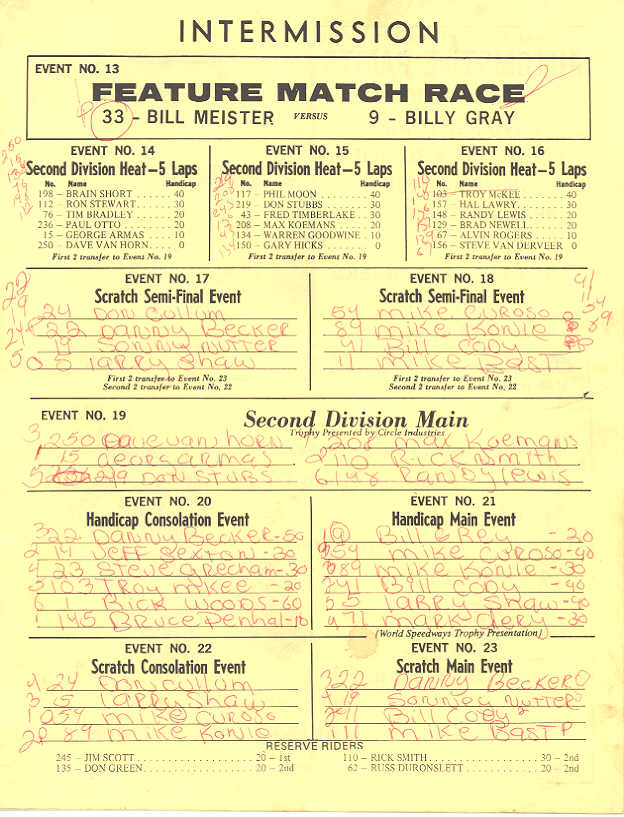 INTERMISSION
EVENT NO. 13
FEATURE MATCH RACE
33 - BILL MEISTER VERSUS 9 - BILLY GRAY
EVENT NO. 14
Second Division Heat—5 Laps
No. Name Handicap
198 – BRAIN SHORT . . . . . 40
112 – RON STEWART. . . . . 30
76 – TIM BRADLEY . . . . . 20
236 – PAUL OTTO . . . . . . 20
15 – GEORGE ARMAS . . . . 10
250 – DAVE VAN HORN. . . . 0
First 2 transfer to Event No. 19
EVENT NO. 15
Second Division Heat—5 Laps
No. Name Handicap
117 – PHIL MOON . . . . . . 40
219 – DON STUBBS . . . . . 30
43 – FRED TIMBERLAKE . . 30
208 – MAX KOEMANS . . . . 20
134 – WARREN GOODWINE . 10
150 – GARY HICKS . . . . . 0
First 2 transfer to Event No. 19
EVENT NO. 16
Second Division Heat—5 Laps
No. Name Handicap
103 – TROY McKEE . . . . . 40
157 – HAL LAWRY . . . . . . 30
148 – RANDY LEWIS . . . . . 20
129 – BRAD NEWELL . . . . . 20
67 – ALVIN ROGERS . . . . 10
156 – STEVE VAN DERVEER 0
First 2 transfer to Event No. 19
EVENT NO. 17
Scratch Semi-Final Event
24 Don Cullum
22 Danny Becker
19 Sonny Nutter
5 Larry Shaw
First 2 transfer to Event No. 23
Second 2 transfer to Event No. 22
EVENT NO. 18
Scratch Semi-Final Event
54 Mike Curoso
89 Mike Konle
91 Bill Cody
11 Mike Bast
First 2 transfer to Event No. 23
Second 2 transfer to Event No. 22
EVENT NO. 19
Second Division Main
Trophy Presented by Circle Industries
3 250 Dave van horn
1 15 George armas
5 219 Don Stubs
208 Max Koemans
2 110 Rick Smith
6 148 Randy Lewis
EVENT NO. 20
Handicap Consolation Event
3 22 Danny Becker-50
2 14 Jeff Sexton-30
4 23 Steve Grecham-30
5 103 Troy mckee - 20
6 1 Rick Woods-60
1 145 Bruce Penhal-10
EVENT NO. 21
Handicap Main Event
Bill Grey - 20
54 Mike Curoso-40
89 Mike Konle-30
91 Bill Cody - 40
5 Larry Shaw-40
71 Mark Dery-30
(World Speedways Trophy Presentation)
EVENT NO. 22
Scratch Consolation Event
4 24 Don Cullum
3 5 Larry Shaw
1 54 Mike Curoso
2 89 Mike Konle
EVENT NO. 23
Scratch Main Event
3 22 Danny Becker
4 19 Sonney Nutter
2 91 Bill Cody
1 11 Mike Bast
RESERVE RIDERS
245 – JIM SCOTT. . . . . . . . . . . . . . . . . . 20 – 1st
135 – DON GREEN. . . . . . . . . . . . . . . . . 20 – 2nd
110 – RICK SMITH. . . . . . . . . . . . . . . . . 30 – 2nd
62 – RUSS DURONSLETT . . . . . . . . . . . . 20 – 2nd